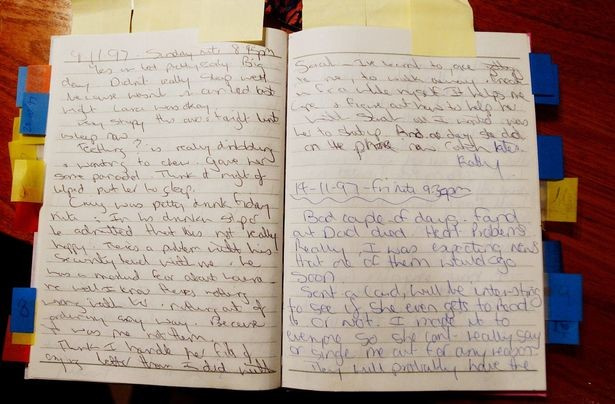 9-11-97. Sunday nite 8.45pm
Yes in bed pretty early. Big
day. Didn't really sleep well
because wasn't in our bed last
night Laura was okay.
asleep now.
Teething? is really dribbling
& wanting to chew. Gave her
some panadol. Think it might of
helped put her to sleep.
Craig was pretty drunk Friday
nite. In his drunken
he admitted that he's not really
happy. There's a problem with his
security level with me. he
has a morbid fear about Laura
me well I know there's nothing
wrong with her. nothing out of
ordinary any way. Because
it was me not them
Think I handle her fits of
crying better than I did with
Sarah - I've learnt to
me; to walk away & breath
in for a while myself. It helps me
cope & figure out how to help her
With Sarah all I wanted was
her to shut up. And one day she did
on the phone now catch later.
Kathy
14-11-97 - Fri nite 930pm
Bad couple of days. Found
out Dad died. Heart Problems
Really, I was expecting news
that one of them would go
soon.
Sent a card, will be interesting
to see if she even gets to read
it or not. I made it to
everyone so she can't really say
or single me out for any reason.
They will probably have the